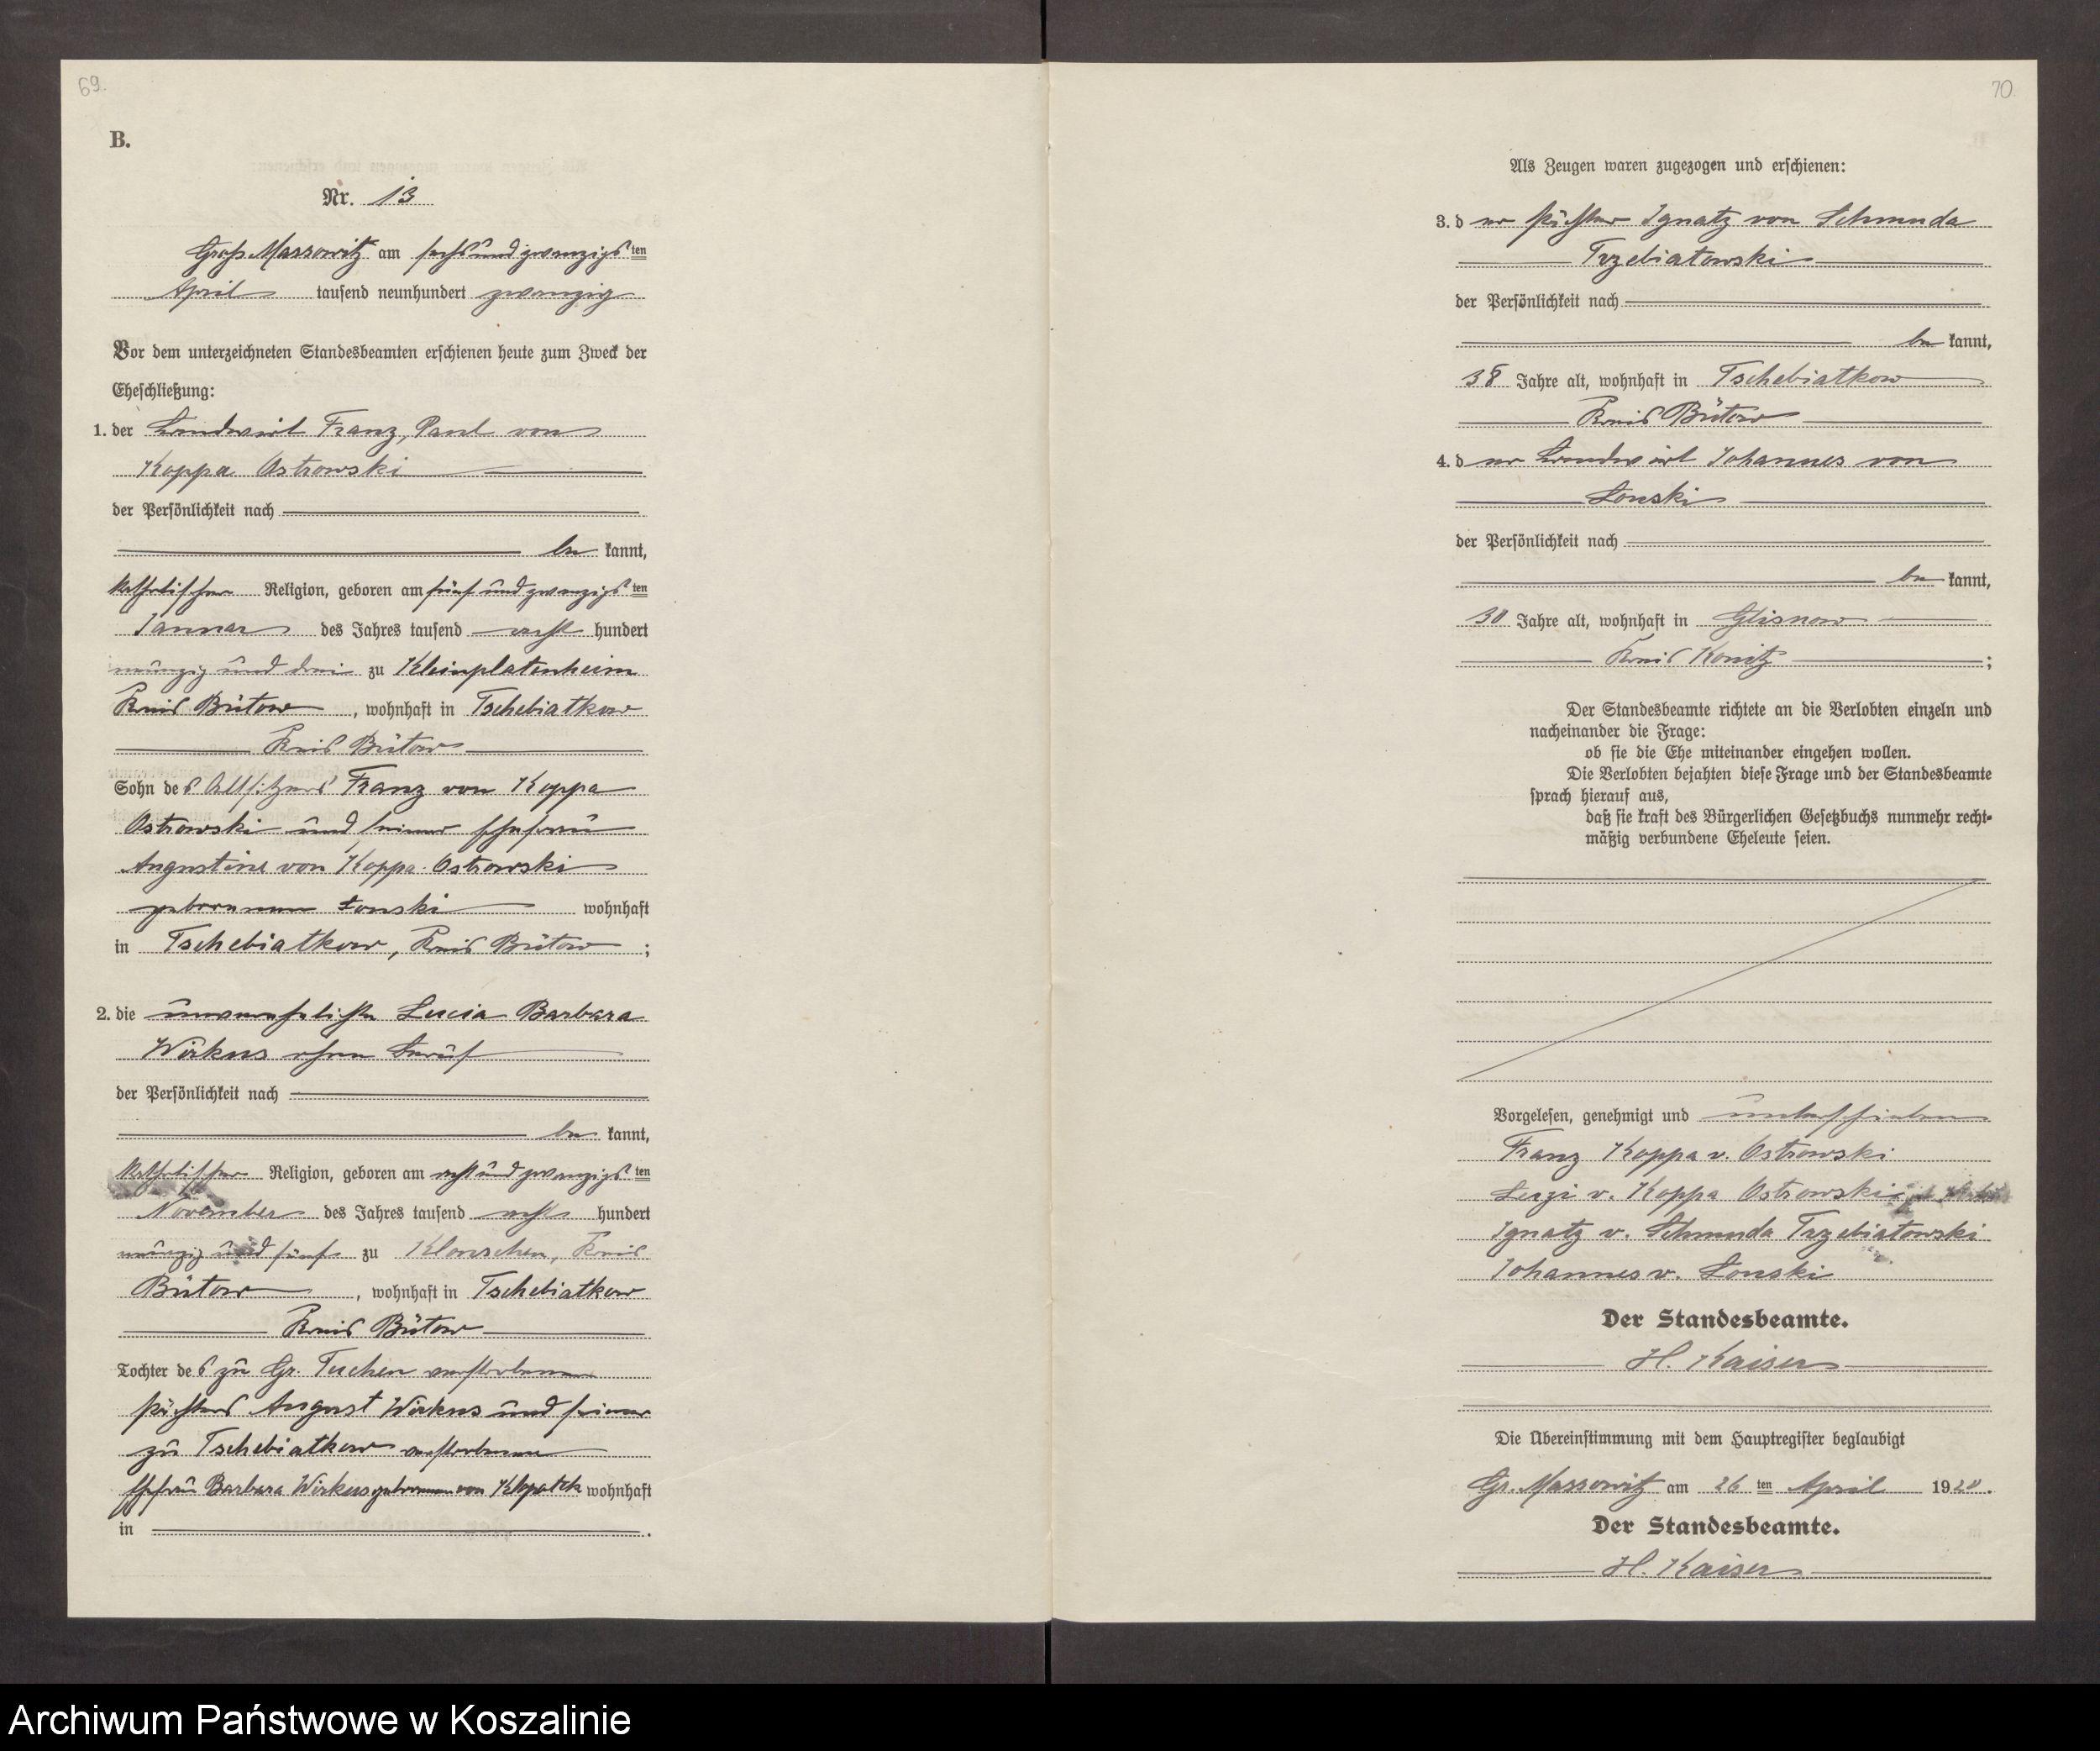 69.
B.
Nr. 13
Groß Massowitz am sechs und zwanzigsten
April tausend neunhundert zwanzig
Vor dem unterzeichneten Standesbeamten erschienen heute zum Zweck der
Eheschließung:
1. der Landwirt Franz, Paul von
Koppa Ostrowski
der Persönlichkeit nach
be kannt,
katholischer Religion, geboren am fünf und zwanzigsten
Januar des Jahres tausend acht hundert
neunzig und drei zu Kleinplatenheim
Kreis Bütow, wohnhaft in Tschebiatkow
Kreis Bütow
Sohn des Altsitzers Franz von Koppa
Ostrowski und seiner Ehefrau
Augustine von Koppa-Ostrowski
geborenen Lonski wohnhaft
in Tschebiatkow, Kreis Bütow;
2. die unverehelichte Lucia Barbara
Wirkus ohne Beruf
der Persönlichkeit nach
be kannt,
katholischer Religion, geboren am acht und zwanzigsten
November des Jahres tausend acht hundert
neunzig und fünf zu Klonschen, Kreis
Bütow, wohnhaft in Tschebiatkow
Kreis Bütow
Tochter des zu Gr. Tuchen verstorbenen
Pächters August Wirkus und seiner
zu Tschebiatkow verstorbenen
Ehefrau Barbara Wirkus geborenen von wohnhaft
in .
70
Als Zeugen waren zugezogen und erschienen:
3. der Pächter Ignatz von Schmuda
Trzebiatowski
der Persönlichkeit nach
be kannt,
38 Jahre alt, wohnhaft in Tschebiatkow
Kreis Bütow
4. der Landwirt Johannes von
Lonski
der Persönlichkeit nach
be kannt,
30 Jahre alt, wohnhaft in Glisnow
Kreis Konitz;
Der Standesbeamte richtete an die Verlobten einzeln und
nacheinander die Frage:
ob sie die Ehe miteinander eingehen wollen.
Die Verlobten bejahten diese Frage und der Standesbeamte
sprach hierauf aus,
daß sie kraft des Bürgerlichen Gesetzbuchs nunmehr recht-
mäßig verbundene Eheleute seien.
Vorgelesen, genehmigt und unterschrieben
Franz Koppa v. Ostrowski
Luzi v. Koppa Ostrowski
Ignatz v. Schmuda Trzebiatowski
Johannes v. Lonski
Der Standesbeamte.
H. Kaiser
Die Übereinstimmung mit dem Hauptregister beglaubigt
Gr. Massowitz am 26 ten April 1920.
Der Standesbeamte.
H. Kaiser
Archiwum Państwowe w Koszalinie